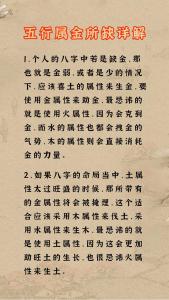 五行属金所缺详解
1.个人的八字中若是缺金.那
也就是金弱.或者是少的情况
下.应该喜土的属性来生金.要
使用金属性来助旺.最忌讳的
就是使用火属性.因为会克到
金.而水的属性也都会拽金的
气势.木的属性则会直接消耗
金的力量.
2.如果八字的命局当中.土属
性太过旺盛的时候.那所带有
的金属性将会被掩埋.这个适
合应该采用木属性来伐土.采
用水属性来生木.最忌讳的就
是使用土属性.因为这会更加
助旺土的生长.也很忌讳火属
性来生土.